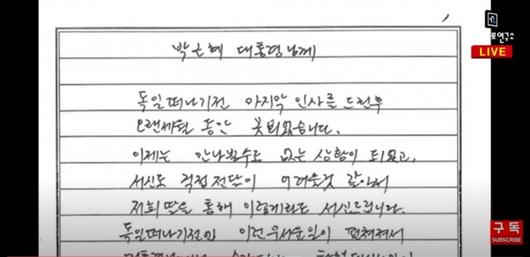 박근혜 대통령님께
독일떠나기전 마지막 인사를 드린후
오랜세월 동안 못뵈었습니다.
이제는 만나뵐수도 없는 상황이 되었고,
서신도 직접전달이 어려울것 같아서
저희 딸을 통해 이렇게라도 서신드립니다.
독일떠나기전에 이런무서운일이 펼쳐져서
연구소
LIVE
구독
SUBSCRIBE